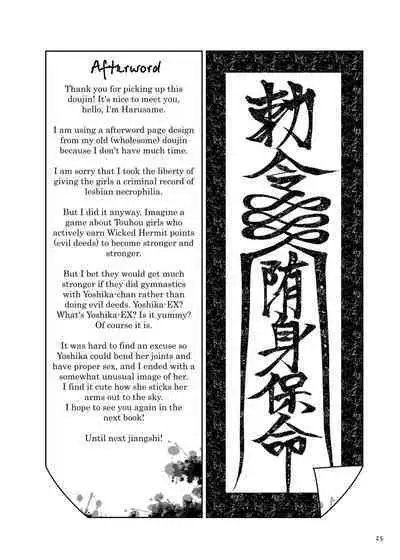 Afterword
Thank you for picking up this
doujin! It's nice to meet you,
hello, I'm Harusame.
I am using a afterword page design
from my old (wholesome) doujin
because I don't have much time.
I am sorry that I took the liberty of
giving the girls a criminal record of
lesbian necrophilia.
But I did it anyway. Imagine a
game about Touhou girls who
actively earn Wicked Hermit points
(evil deeds) to become stronger and
stronger.
But I bet they would get much
stronger if they did gymnastics
with Yoshika-chan rather than
doing evil deeds. Yoshika-EX?
What's Yoshika-EX? Is it yummy?
Of course it is.
It was hard to find an excuse so
Yoshika could bend her joints and
have proper sex, and I ended with a
somewhat unusual image of her.
I find it cute how she sticks her
arms out to the sky.
I hope to see you again in the
next book!
Until next jiangshi!
勅令
陏身保命
25